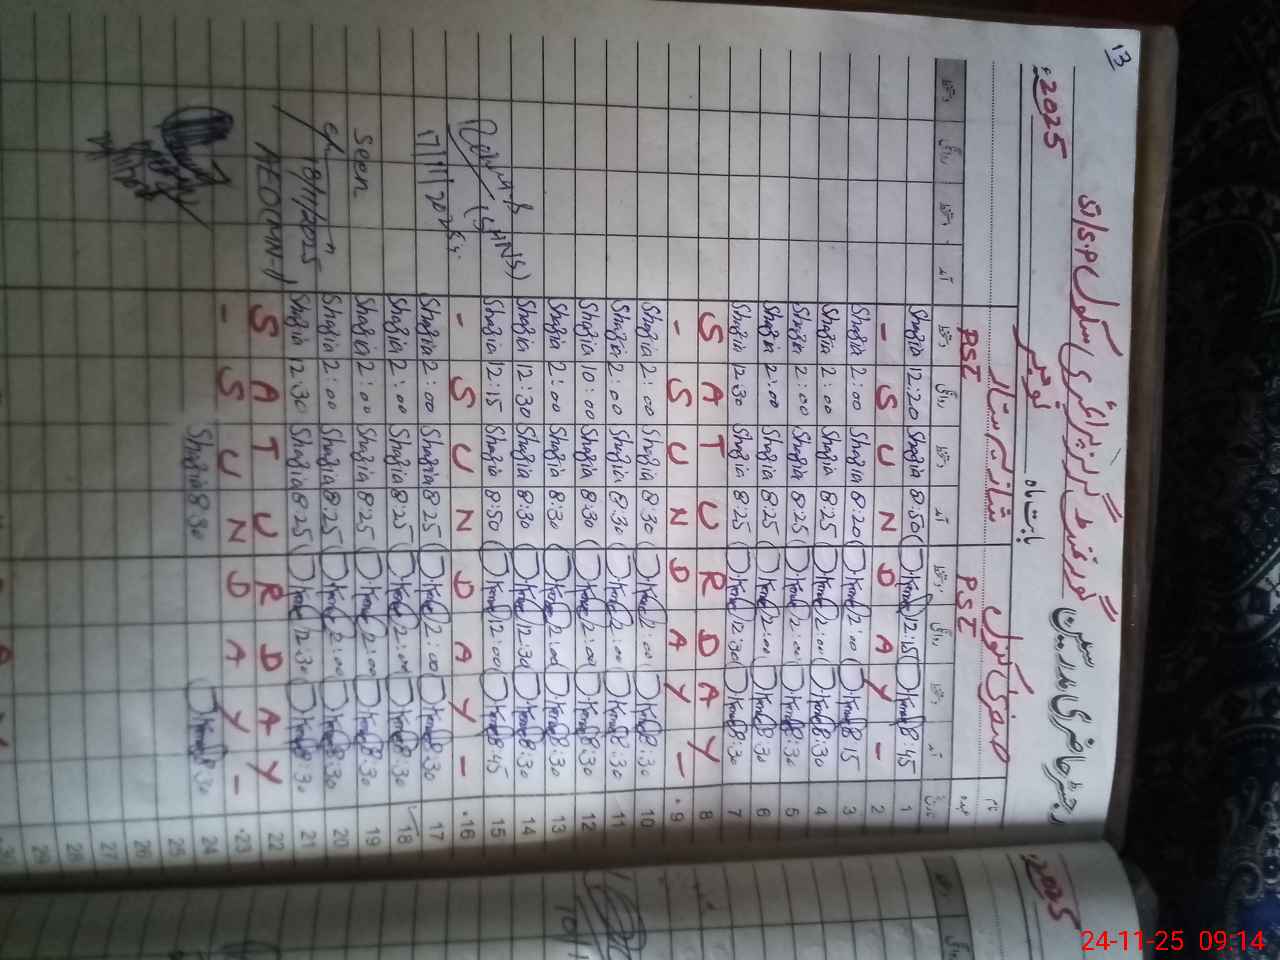 13
2025ء
رجسٹر حاضری مدرسین
گورنمنٹ گرلز پرائمری سکول
بابت ماہ نومبر 2025ء
نام صغریٰ بتول شازیہ ستار
عہدہ PST PST
تاریخ آمد دستخط روانگی دستخط آمد دستخط روانگی دستخط
1 8:45 12:15 8:50 Shazia 12:20 Shazia
2 - S U N D A Y -
3 8:15 2:00 8:20 Shazia 2:00 Shazia
4 8:30 2:00 8:25 Shazia 2:00 Shazia
5 8:30 2:00 8:25 Shazia 2:00 Shazia
6 8:30 2:00 8:25 Shazia 2:00 Shazia
7 8:30 12:30 8:25 Shazia 12:30 Shazia
8 S A T U R D A Y
9 - S U N D A Y -
10 8:30 2:00 8:30 Shazia 2:00 Shazia
11 8:30 2:00 8:30 Shazia 2:00 Shazia
12 8:30 2:00 8:30 Shazia 10:00 Shazia
13 8:30 2:00 8:30 Shazia 2:00 Shazia
14 8:30 12:30 8:30 Shazia 12:30 Shazia
15 8:45 12:00 8:50 Shazia 12:15 Shazia
16 - S U N D A Y -
17 8:30 2:00 8:25 Shazia 2:00 Shazia
18 8:30 2:00 8:25 Shazia 2:00 Shazia
19 8:30 2:00 8:25 Shazia 2:00 Shazia
20 8:30 2:00 8:25 Shazia 2:00 Shazia
21 8:30 12:30 8:25 Shazia 12:30 Shazia
22 S A T U R D A Y
23 - S U N D A Y -
24 8:30 8:30 Shazia
25
26
27
28
29
(SHNS)
17/11/2025
Seen
18/11/2025
2025
24-11-25 09:14